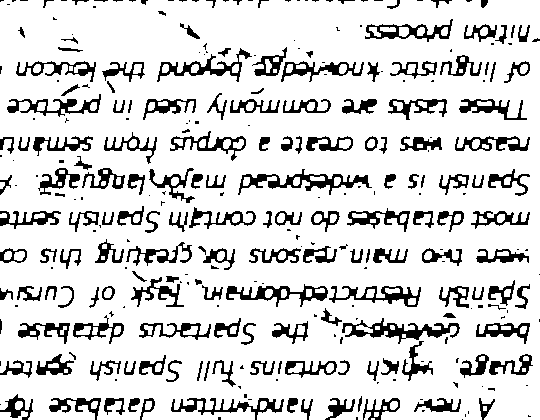 A new offline handwritten database fo
guage, which contains full Spanish senten
been developed: the Spartacus database (
Spanish Restricted-domain Task of Cursiv
were two main reasons for creating this co
most databases do not contain Spanish sente
Spanish is a widespread major language. A
reason was to create a corpus from semant
These tasks are commonly used in practice
of linguistic knowledge beyond the lexicon
nition process
the Spartacus database